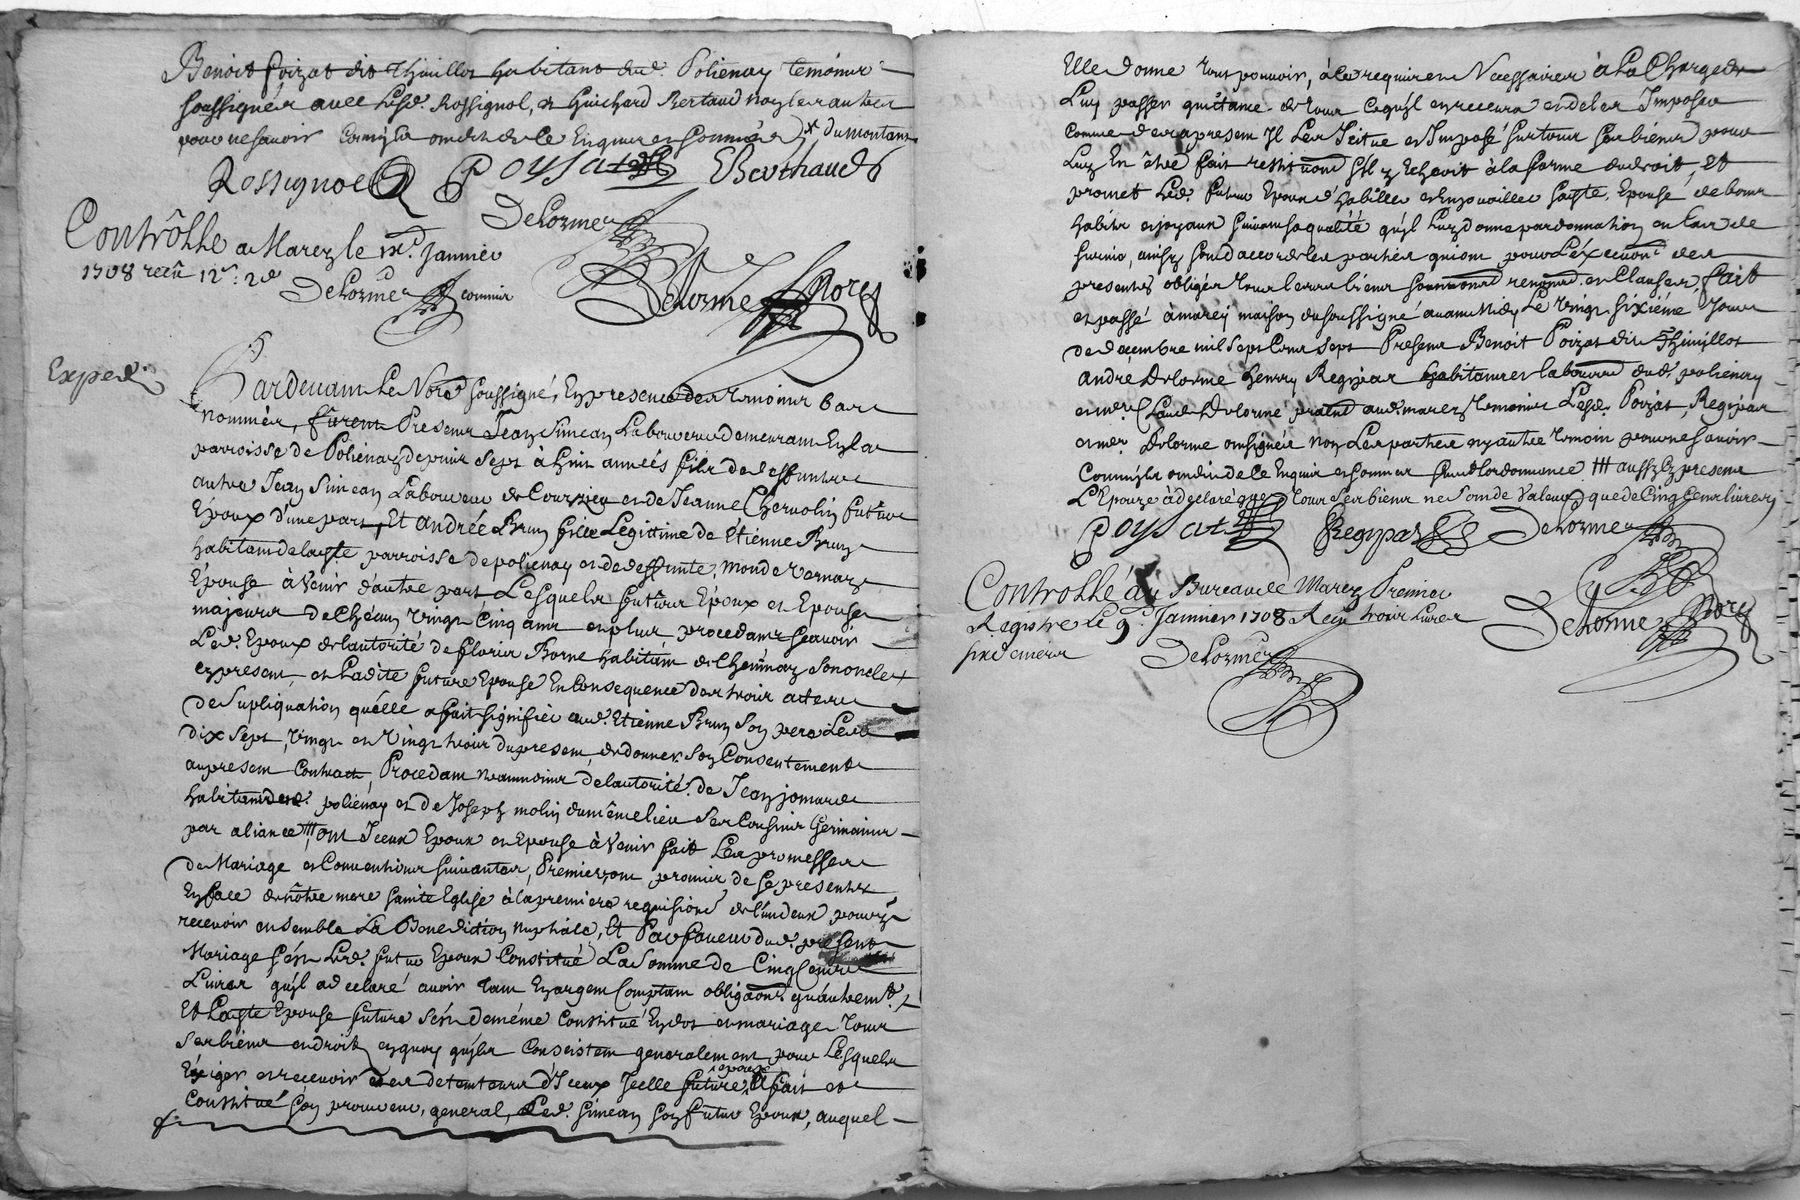 Benoit Poizat dit Thuillot habitant dud. Polienay temoins
soussignés avec lesd. Rossignol, et Guichard Bertaud non les autres
pour ne savoir comme ils ont dit de ce Enquis et sommés * du montant
Rossignol Poysat EBerthaud
Delorme
Contrôllé a Marez le janvier
1708 recû 12s. 2d
Delorme commis
Delorme Nore
Expedié
Pardevant Le Nore soussigné, En presence des temoins bas
nommés, fûrent Presens Jean Simean Laboureur demeurant En la
parroisse de Polienay depuis sept à huit années fils de deffunt
autre Jean Simean Laboureur de Courzieu et de Jeanne Chervolin futurs
Epoux d'une part, Et Andrée Brun fille Legittime de Étienne Brun
habitant de laditte parroisse de polienay et de deffunte, Monde vernay
Épouse à Venir d'autre part Lesquels futurs Epoux et Epouse
majeurs de Chacun Vingt Cinq ans et plus procedans sçavoir
Led. Epoux de lautorité de fleury Borne habitant de Chevinay son oncle
cy present, et Ladite future Epouse En Consequence des trois actes
de supliquation quélle a fait signifier aud. Etienne Brun Son pere Les
dix sept, vingt et Vingt trois du present, de donner Son Consentement
au present Contract, Procedant neanmoins de lautorité de Jean jomard
habitant dud. polienay et de Joseph molin du même lieu ses Cousins Germains
par aliance ont Iceux Epoux et Epouse à Venir fait Les promesses
de Mariage et Conventions suivantes, Premier, ont promis de se presenter
En face de nôtre mere Sainte Eglise à la premiere requisiõn de lun deux pour y
recevoir ensemble La Benediction nuptiale, Et Par faveur dud. present
Mariage s'est Led. futur Epoux Constitué La Somme de Cinq Cents
Livres qu'il a declaré avoir tant En argent Comptant obligãons qu'autremt.
Et Laditte Epouse future s'est de même Constitué En dot et mariage tous
ses biens et droits en quoy qu'ils Consistent generalement pour Lesquels
Exiger et recevoir des detenteurs d'Iceux Icelle future epouse a fait et
Constitué son procureur, general, Led. Simean son futur Epoux, auquel
Elle donne tout pouvoir, à ce requis et Necessaire à La Charge de
Luy passer quittance de tout ce qu'il en recevra et de les Imposer
Comme des a present Il Les Jette et Impose sur tous ses biens pour
Luy En être fait restitûon s'il y Echeoit à la forme du droit, Et
promet Led. futur Epoux d'habiller et Enjoüailler saditte Epouse de bons
habits et joyaux suivant sa qualité qu'il Luy donne par donnation en Cas de
survie, ainsy sont d'accord les parties qui ont pour L'éxecuõn des
presentes obligés tous leurs biens soumãons renonãons et Clauses, fait
et passé à marez maison du soussigné avant Midy Le Vingt sixiéme Jour
de decembre mil Sept Cent Sept Presens Benoit Poizat dit Thuillot
Andre Delorme henry Regipas habitans et laboureurs dud. polienay
et me. Claude Delorme praticn aud. marez temoins Lesd. Poizat, Regipas
et me. Delorme ont signés non Les parties ny autre temoin pour ne savoir
Comme ils ont dit de Ce Enquis et sommés suivt Lordonnance aussy Cy presens
L'Epouze à declaré que tous ses biens ne sont de Valeur que de Cinq Cens livres
Poysat Regipas Delorme
Controllé au Bureau de Marez Premier
Registre Le 9e. Janvier 1708 Receu trois Livres
six deniers
Delorme
Delorme Nore